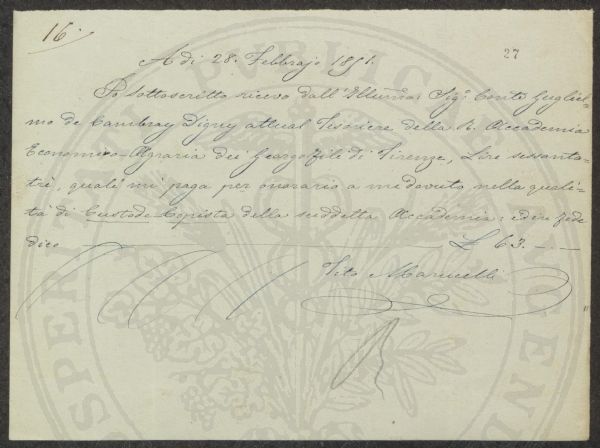 16.
27
A dì 28. Febbrajo 1851.
Io sottoscritto ricevo dall'Illumo: Sigr. Conte Gugliel-
mo de Cambray Digny attual Tesoriere della R. Accademia
Economico-Agraria dei Georgofili di Firenze, Lire sessanta-
tré, quali mi paga per onorario a me dovuto nella quali-
tà di Custode-Copista della suddetta Accademia; ed in fede
dico — £ 63. — . —
Tito Marucelli
PROSPERITATI PUBLICAE AUGENDAE